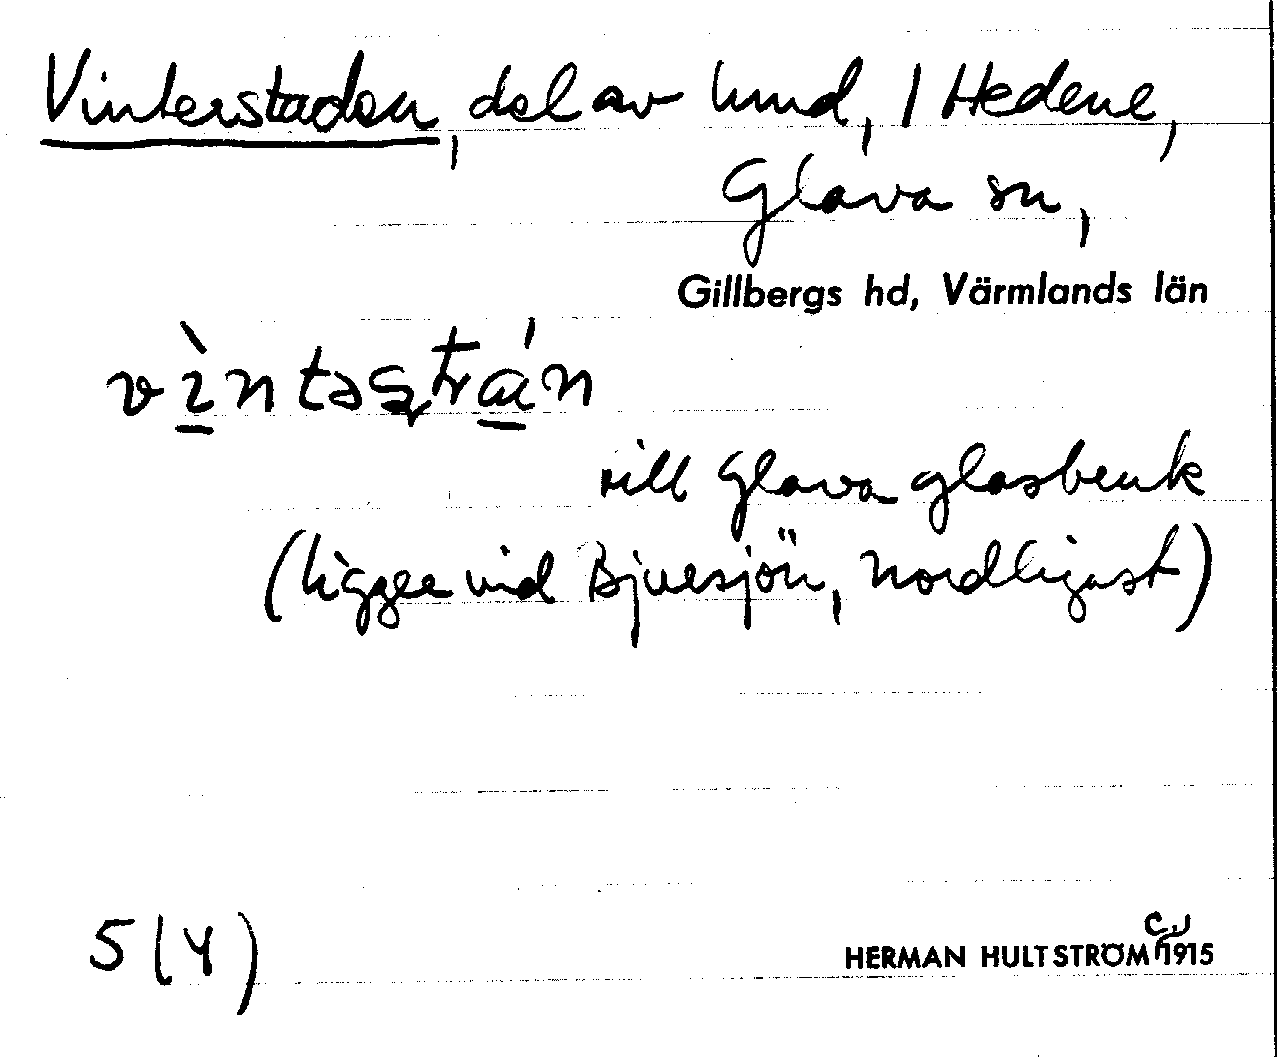 Vinterstaden, del av lund, / Hedene,
Glava sn,
Gillbergs hd, Värmlands län
vìntəʂtrán
till Glava glasbruk
(ligger vid Bjuresjön, nordligast)
5 (4)
HERMAN HULTSTRÖM 1915